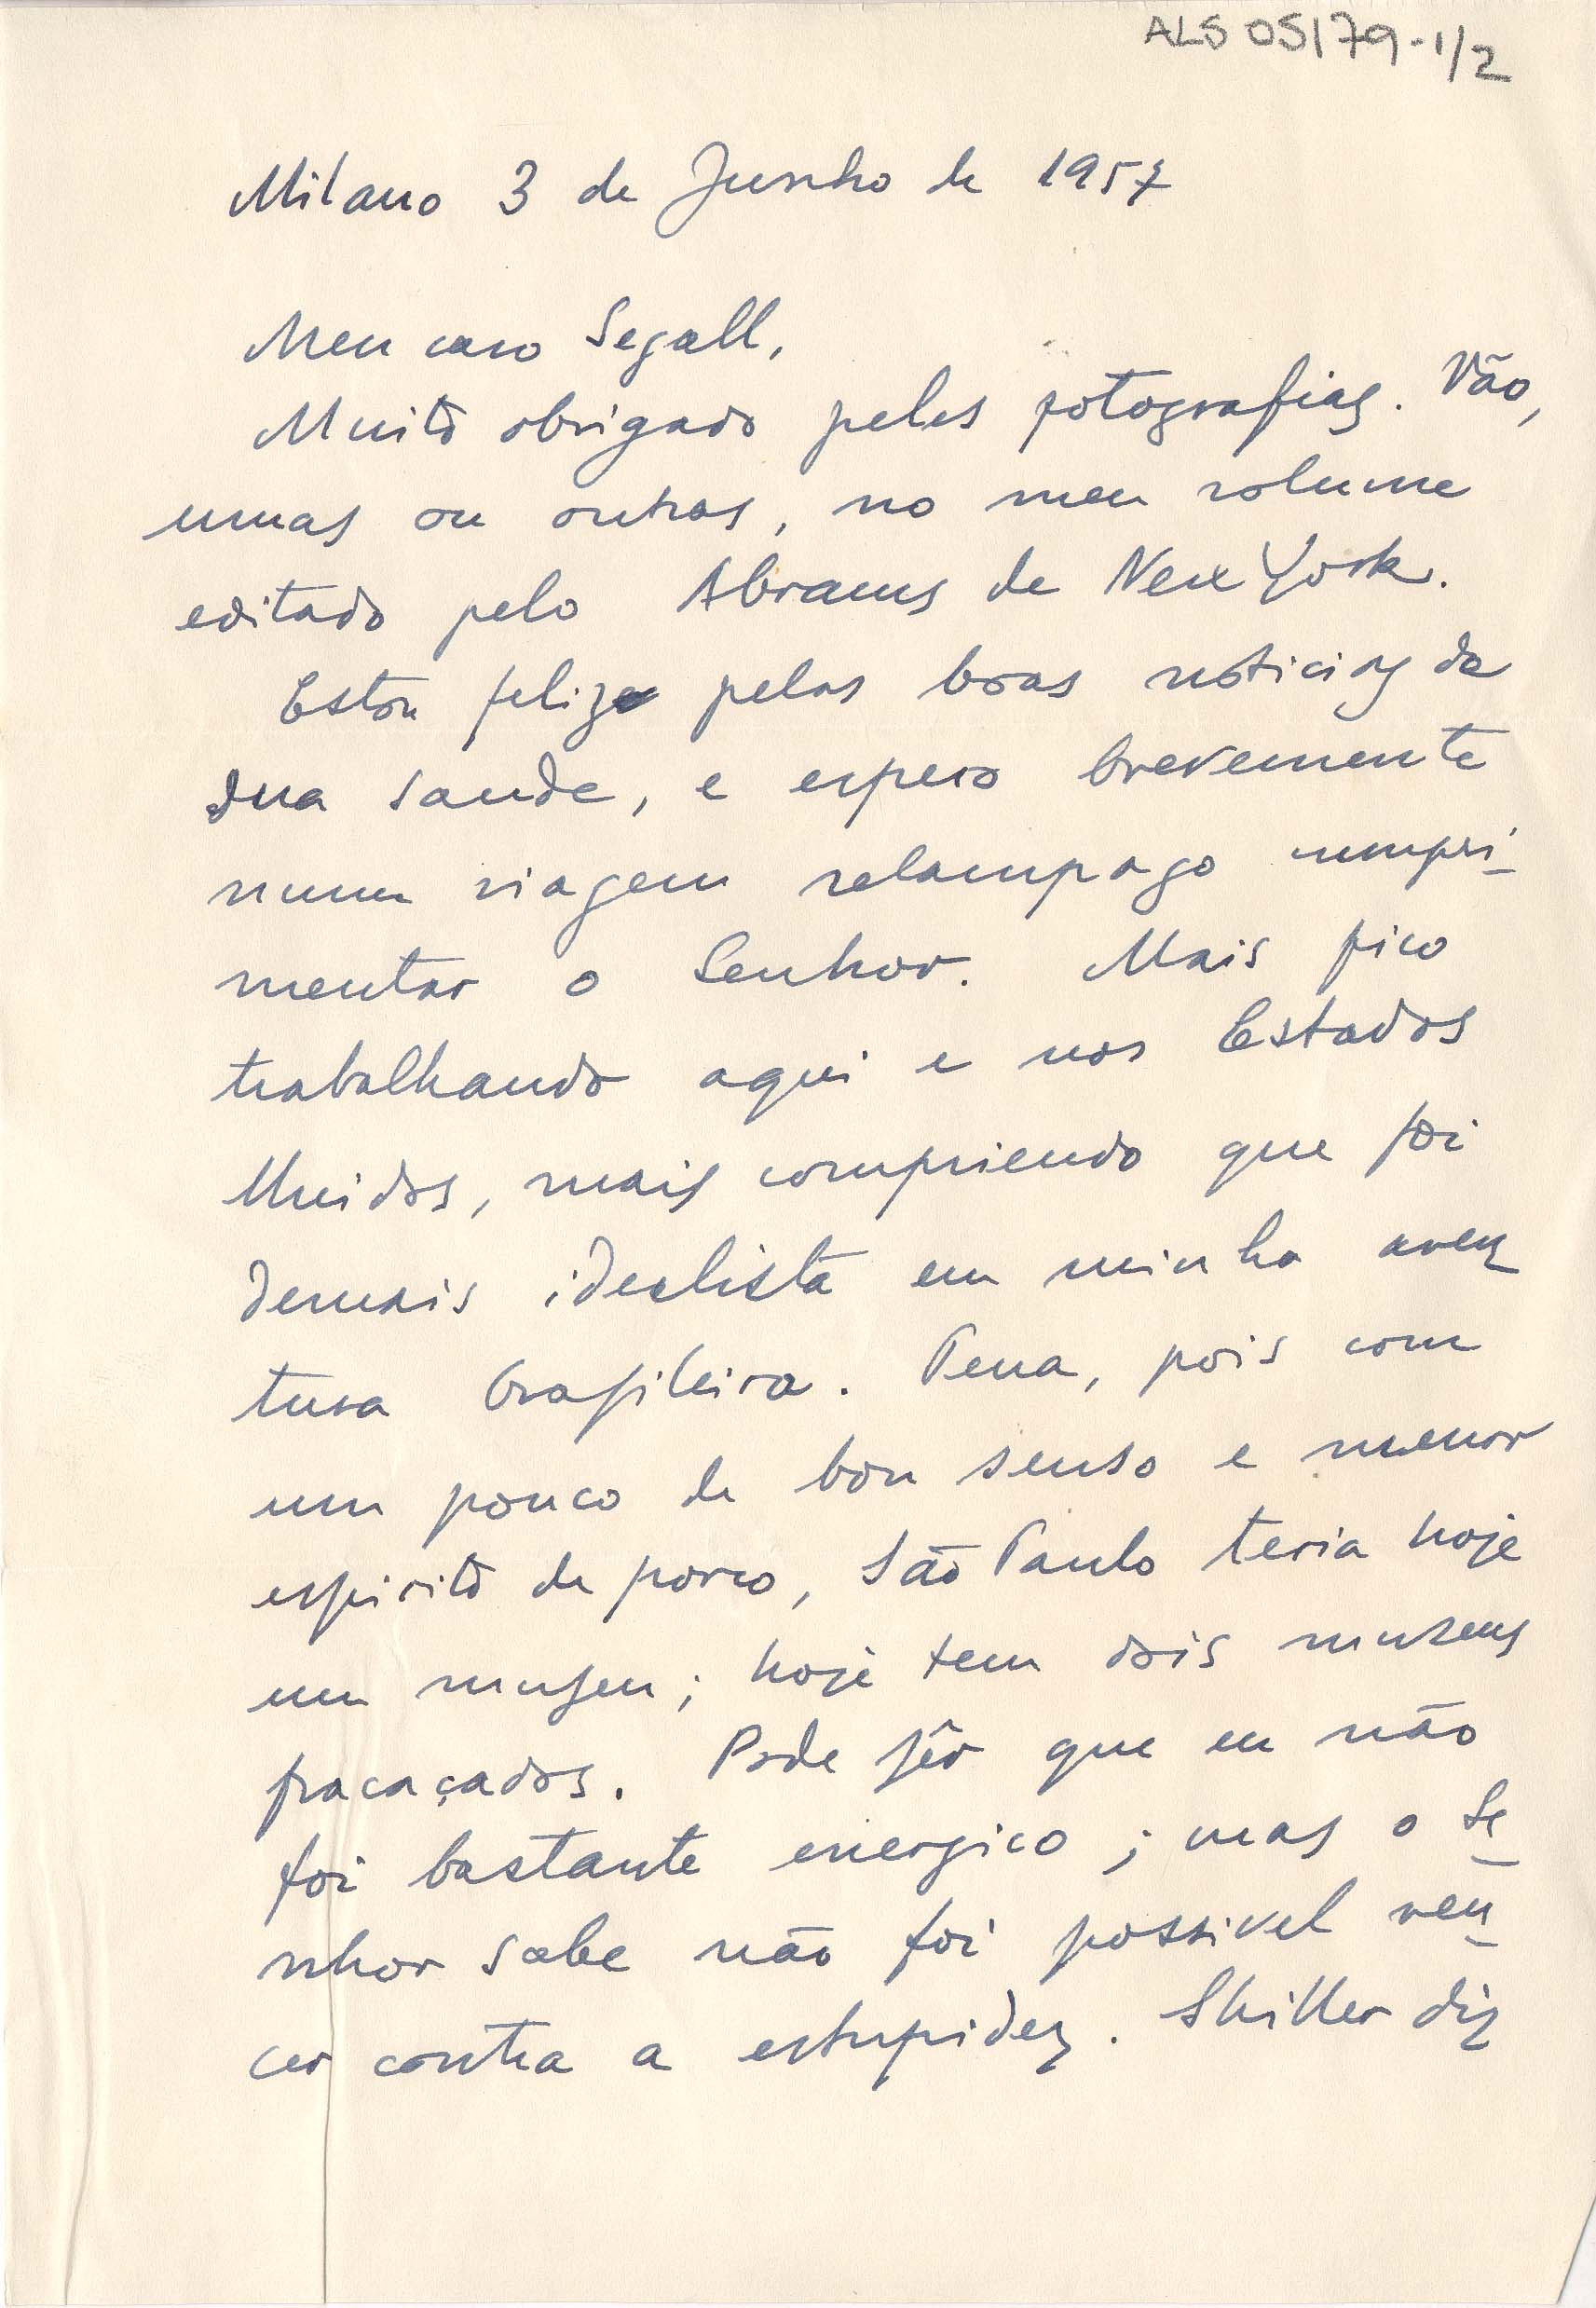 ALS 05179-1/2
Milano 3 de Junho de 1957
Meu caro Segall,
Muito obrigado peles fotografias. Vão,
umas ou outras, no meu volume
editado pelo Abrams de New York.
Estou feliz pelas boas noticias da
sua saude, e espero brevemente
numa viagem relampago cumpri-
mentar o Senhor. Mais fico
trabalhando aqui e nos Estados
Unidos, mais compriendo que foi
demais idealista em minha aven
tura brasileira. Pena, pois com
um pouco de bon senso e menor
espirito de porco, São Paulo teria hoje
um museu; hoje tem dois museus
fracaçados. Pode sêr que eu não
foi bastante energico; mas o Se-
nhor sabe não foi possivel ven-
cer contra a estupidez. Shiller diz